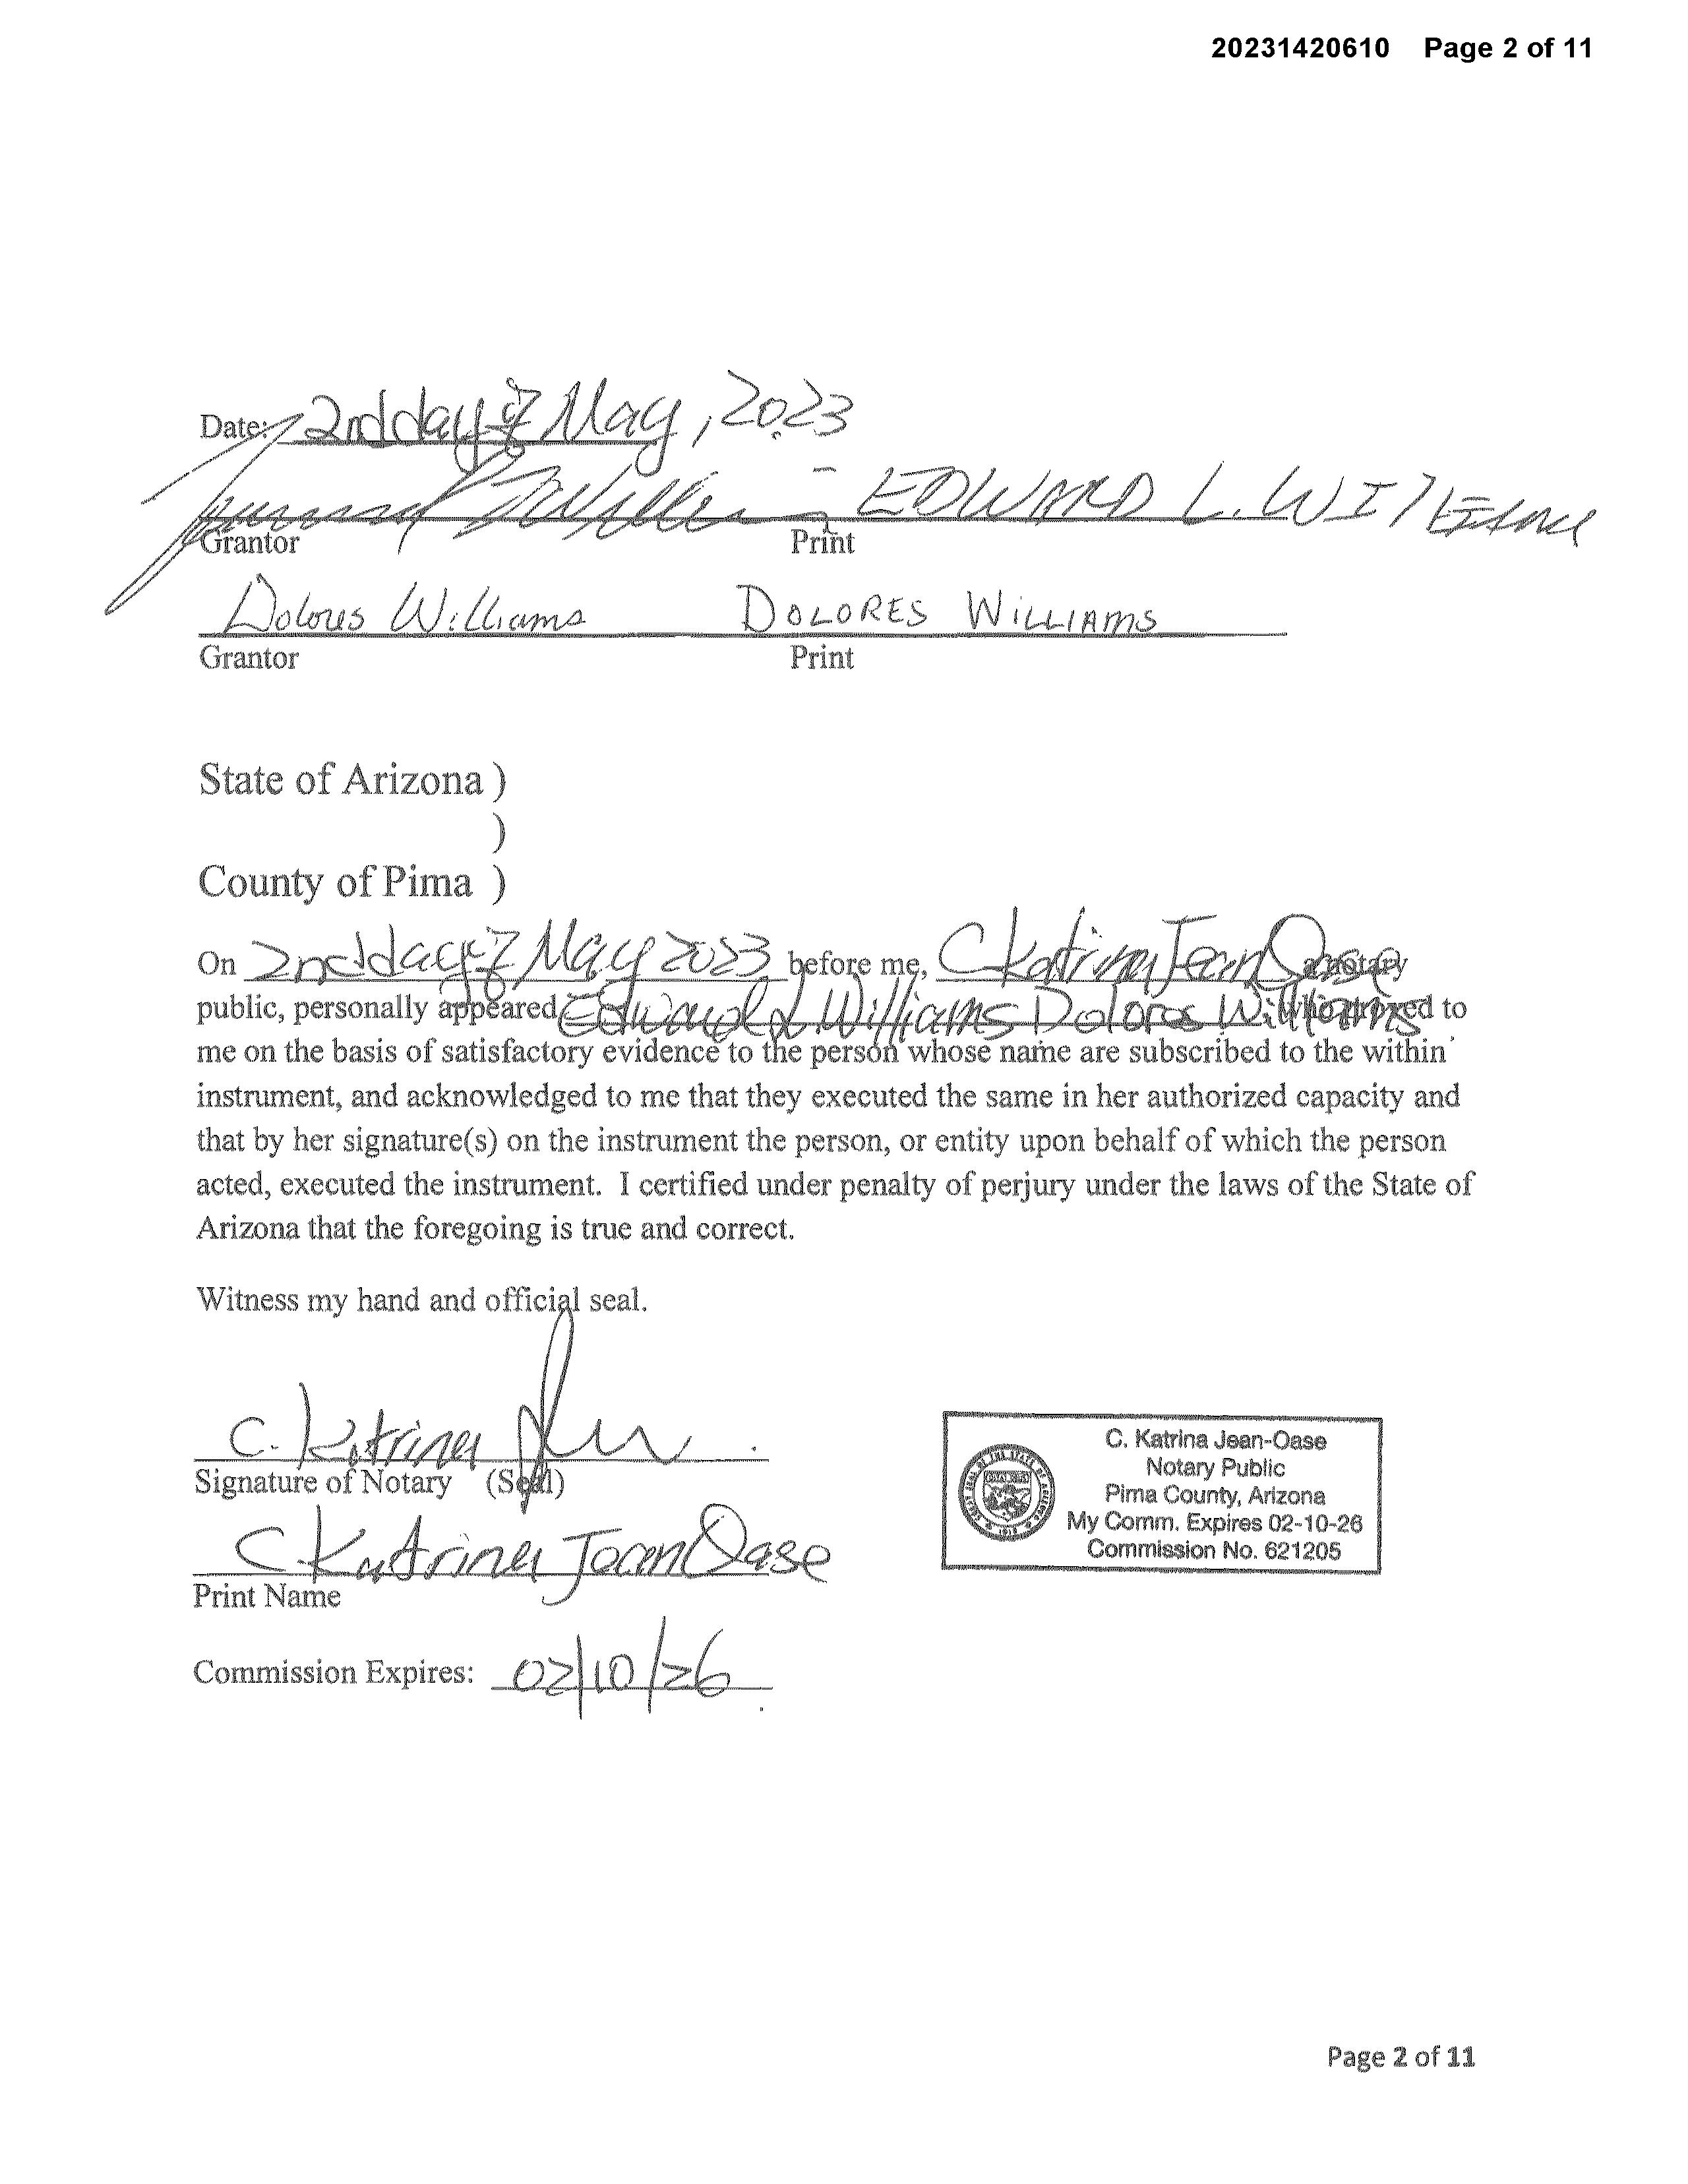 20231420610 Page 2 of 11
Date: 2nd day of May, 2023
EDWARD L. WIlliams
Grantor Print
Dolores Williams DOLORES WILLIAMS
Grantor Print
State of Arizona )
)
County of Pima )
On 2nd day of May 2023 before me, C Katrina Jean Oase a notary
public, personally appeared Edward L Williams Dolores Williams who proved to
me on the basis of satisfactory evidence to the person whose name are subscribed to the within
instrument, and acknowledged to me that they executed the same in her authorized capacity and
that by her signature(s) on the instrument the person, or entity upon behalf of which the person
acted, executed the instrument. I certified under penalty of perjury under the laws of the State of
Arizona that the foregoing is true and correct.
Witness my hand and official seal.
C. Katrina
Signature of Notary (Seal)
C Katrina Jean Oase
Print Name
Commission Expires: 02/10/26
C. Katrina Jean-Oase
Notary Public
Pima County, Arizona
My Comm. Expires 02-10-26
Commission No. 621205
Page 2 of 11